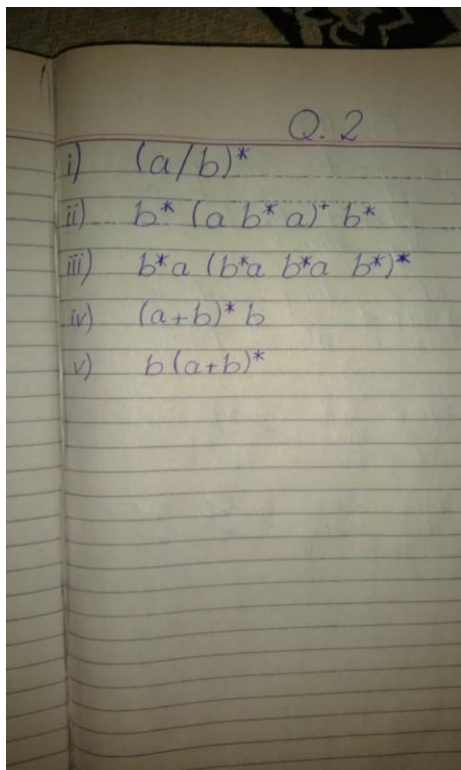 Q. 2
i) (a/b)*
ii) b* (a b* a)⁺ b*
iii) b*a (b*a b*a b*)*
iv) (a+b)* b
v) b(a+b)*